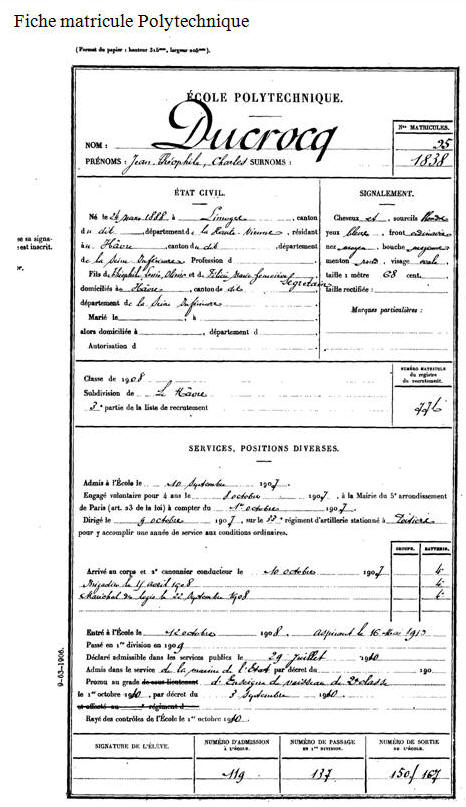 Fiche matricule Polytechnique
(Format du papier : hauteur 315mm, largeur 205mm).
ÉCOLE POLYTECHNIQUE.
Ducrocq
Nos MATRICULES.
NOM :
35
PRÉNOMS : Jean Théophile, Charles SURNOMS :
1838
ÉTAT CIVIL.
Né le 26 mars 1888, à Limoges, canton
du dit, département de la Haute-Vienne, résidant
à Hâvre, canton du dit, département
de la Seine Inférieure Profession d
Fils de Théophile Louis Olivier et de Félicie Marie Segretain
domiciliés à Hâvre, canton de dit
département de la Seine Inférieure
Marié le , à
alors domiciliée à , département d
Autorisation d
SIGNALEMENT.
Cheveux et sourcils blonds
yeux bleus, front ordinaire
nez moyen, bouche moyenne
menton rond, visage ovale
taille 1 mètre 68 cent.
taille rectifiée :
Marques particulières :
se sa signa-
et inscrit.
Classe de 1908
Subdivision de Le Hâvre
3e partie de la liste de recrutement
NUMÉRO MATRICULE
du registre
du recrutement.
776
SERVICES, POSITIONS DIVERSES.
Admis à l'École le 10 Septembre 1907
Engagé volontaire pour 4 ans le 8 octobre 1907, à la Mairie du 5e arrondissement
de Paris (art. 23 de la loi) à compter du 1er octobre 1907
Dirigé le 9 octobre 1907, sur le 33e régiment d'artillerie stationné à Poitiers
pour y accomplir une année de service aux conditions ordinaires.
GROUPE. BATTERIE.
Arrivé au corps et 2e canonnier conducteur le 10 octobre 1907 4e
Brigadier le 17 avril 1908 4e
Maréchal des logis le 22 Septembre 1908 4e
Entré à l'École le 12 octobre 1908. Aspirant le 16 Mars 1913
Passé en 1re division en 1909
Déclaré admissible dans les services publics le 29 Juillet 1910
Admis dans le service de la marine de l'État par décret du 190
Promu au grade de sous-lieutenant d'Enseigne de vaisseau de 2e classe
le 1er octobre 1910, par décret du 3 Septembre 1910
et affecté au régiment d
Rayé des contrôles de l'École le 1er octobre 1910
9-63-1906.
SIGNATURE DE L'ÉLÈVE.
NUMÉRO D'ADMISSION
à l'école.
119
NUMÉRO DE PASSAGE
en 1re division.
137
NUMÉRO DE SORTIE
de l'école.
150/167